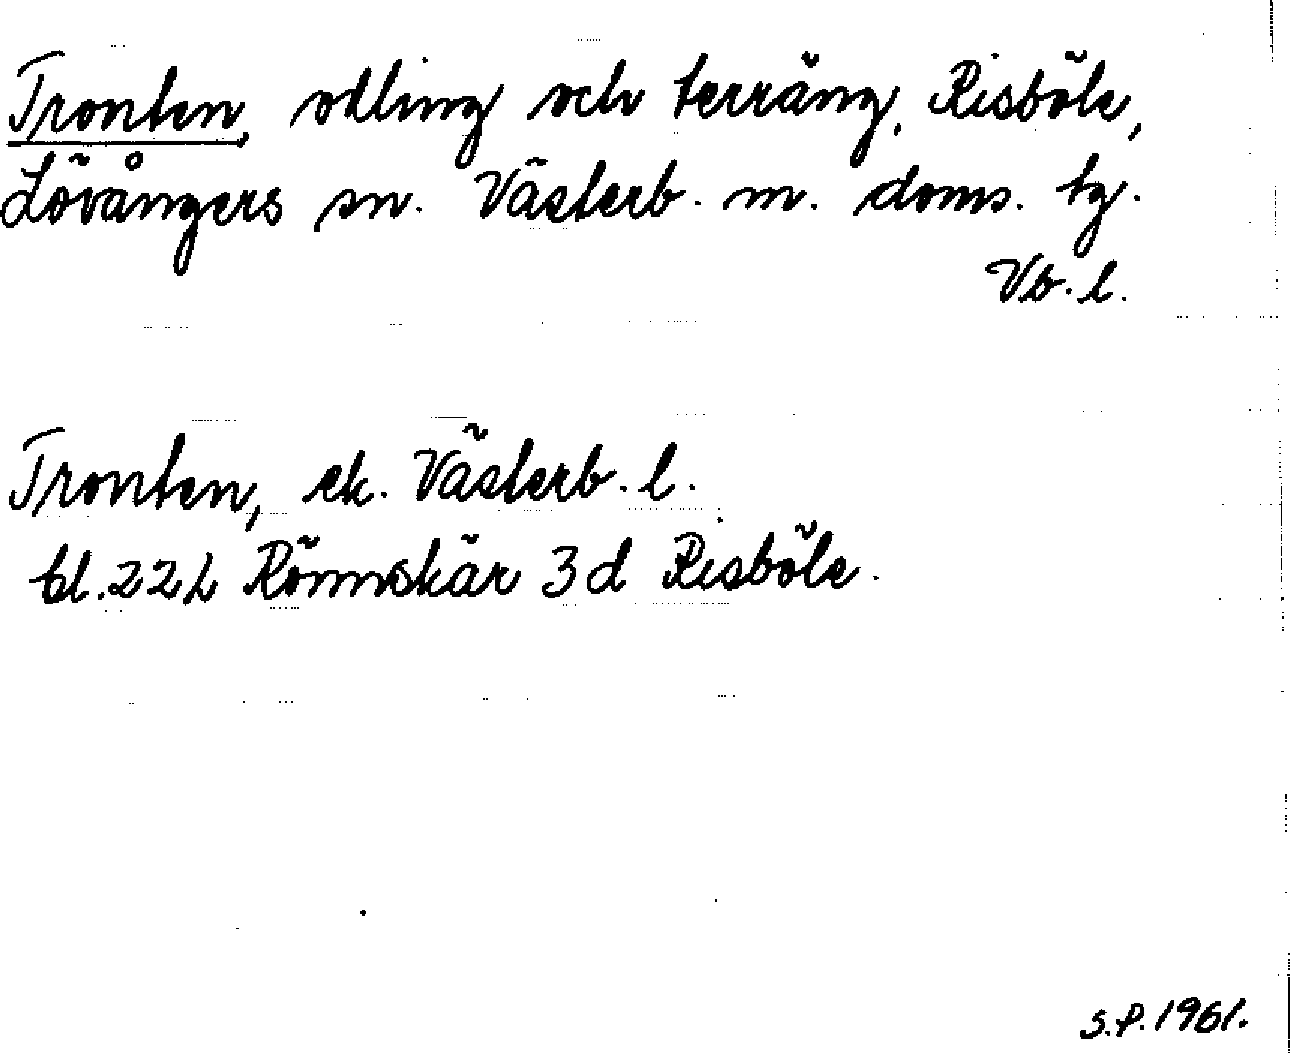 Tronten, odling och terräng, Risböle,
Lövångers sn. Västerb. m. doms. tg.
Vb. l.
Tronten, ek. Västerb. l.
bl. 22L Rönnskär 3d Risböle.
S.P. 1961.